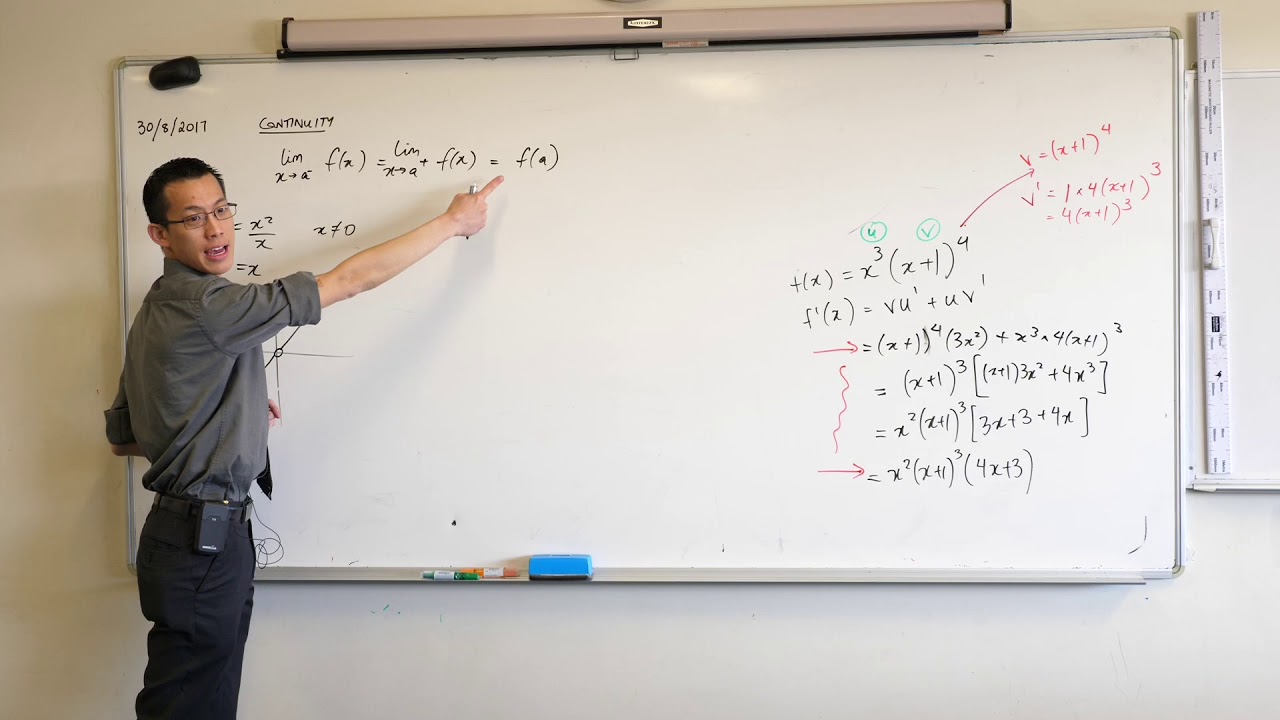 30/8/2017 CONTINUITY
lim x→a⁻ f(x) = lim x→a⁺ f(x) = f(a)
= x²/x x≠0
= x
v = (x+1)⁴
v' = 1×4(x+1)³
= 4(x+1)³
u v
f(x) = x³(x+1)⁴
f'(x) = vu' + uv'
= (x+1)⁴(3x²) + x³×4(x+1)³
= (x+1)³[(x+1)3x²+4x³]
= x²(x+1)³[3x+3+4x]
= x²(x+1)³(4x+3)